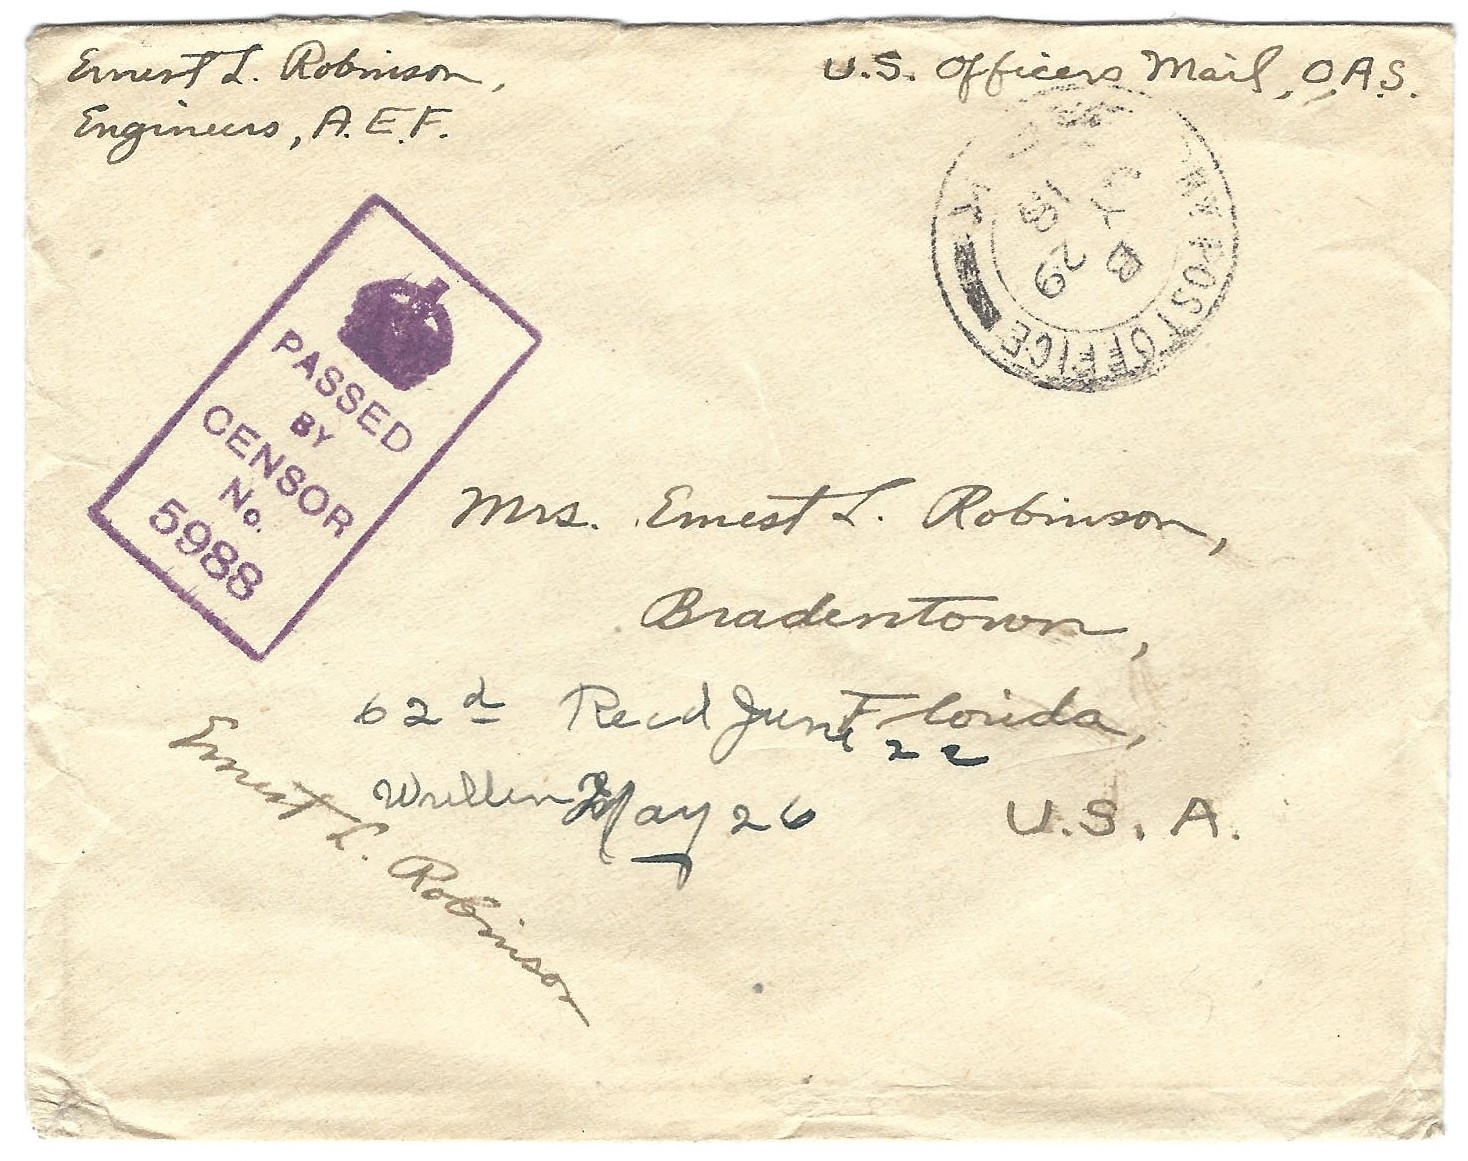 Ernest L. Robinson,
Engineers, A.E.F.
U.S. Officers Mail, O.A.S.
POST OFFICE
B
MY
29
18
PASSED
BY
CENSOR
No.
5988
Mrs. Ernest L. Robinson,
Bradentown,
Florida,
U.S.A.
62d Recd June 22
Written May 26
Ernest L. Robinson